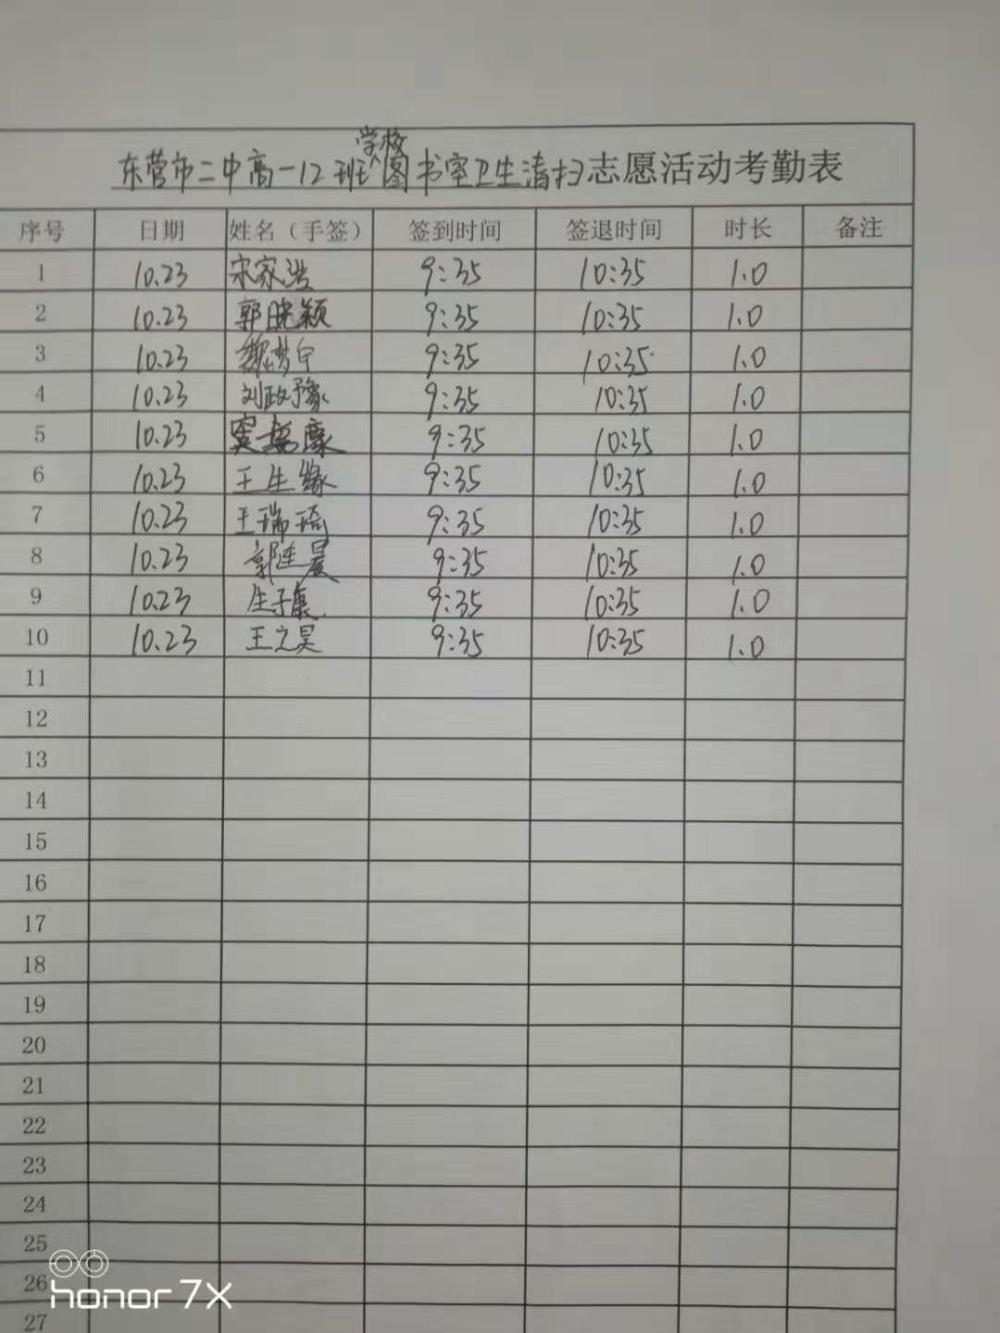 东营市二中高一12班学校图书室卫生清扫志愿活动考勤表
序号 日期 姓名（手签） 签到时间 签退时间 时长 备注
1 10.23 宋家浩 9:35 10:35 1.0
2 10.23 郭晓颖 9:35 10:35 1.0
3 10.23 9:35 10:35 1.0
4 10.23 刘政豫 9:35 10:35 1.0
5 10.23 9:35 10:35 1.0
6 10.23 王生缘 9:35 10:35 1.0
7 10.23 王瑞琦 9:35 10:35 1.0
8 10.23 9:35 10:35 1.0
9 10.23 9:35 10:35 1.0
10 10.23 王之昊 9:35 10:35 1.0
11
12
13
14
15
16
17
18
19
20
21
22
23
24
25
26
27
honor 7X